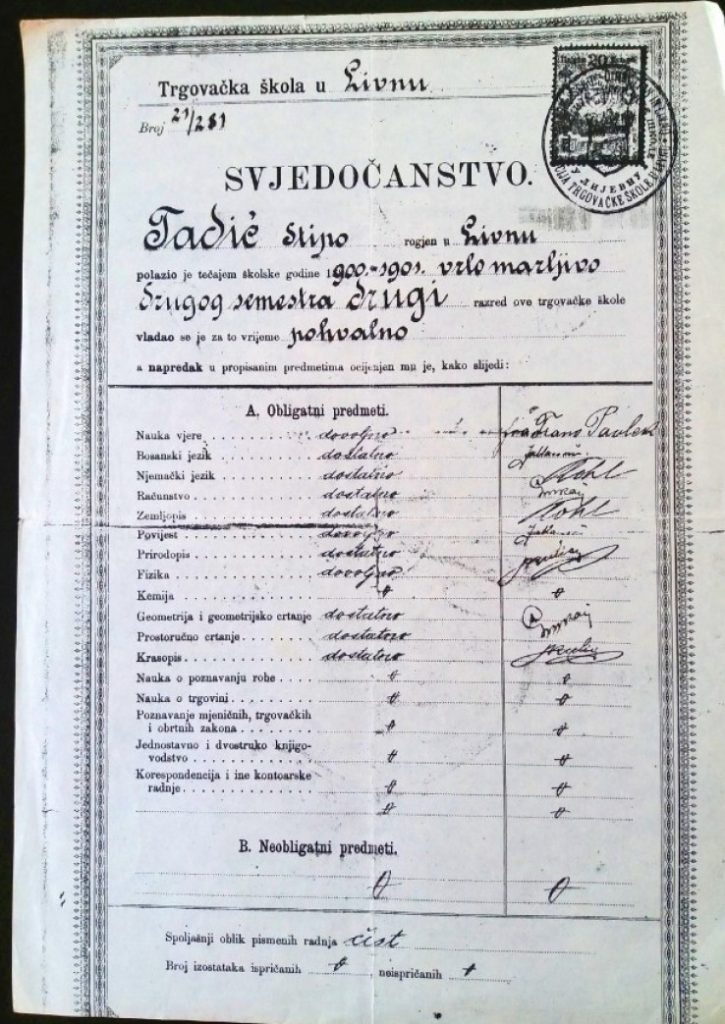 Trgovačka škola u Livnu
Broj 21/281
20
TRGOVAČKE ŠKOLE
У ЛИЈЕВНУ
SVJEDOČANSTVO.
Tadić Stipo rogjen u Livnu
polazio je tečajem školske godine 1900.-1901. vrlo marljivo
drugog semestra drugi razred ove trgovačke škole
vladao se je za to vrijeme pohvalno
a napredak u propisanim predmetima ocijenjen mu je, kako slijedi:
A. Obligatni predmeti.
Nauka vjere dovoljno fra Frano
Bosanski jezik dostatno
Njemački jezik dostatno Kohl
Računstvo dostatno
Zemljopis dostatno Kohl
Povijest dovoljno
Prirodopis dostatno
Fizika dovoljno
Kemija
Geometrija i geometrijsko crtanje dostatno
Prostoručno crtanje dostatno
Krasopis dostatno
Nauka o poznavanju robe
Nauka o trgovini
Poznavanje mjeničnih, trgovačkih
i obrtnih zakona
Jednostavno i dvostruko knjigo-
vodstvo
Korespondencija i ine kontoarske
radnje
B. Neobligatni predmeti.
Spoljašnji oblik pismenih radnja čist
Broj izostataka ispričanih , neispričanih